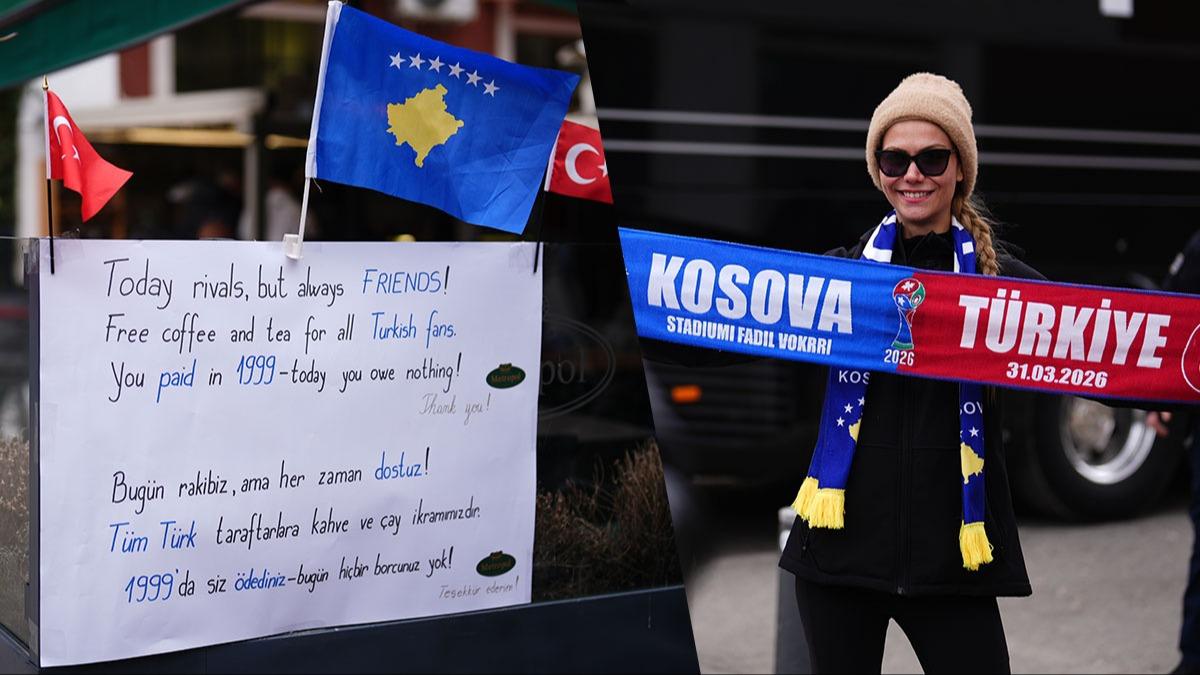 Today rivals, but always FRIENDS!
Free coffee and tea for all Turkish fans.
You paid in 1999-today you owe nothing!
Metropol
Thank you!
Bugün rakibiz, ama her zaman dostuz!
Tüm Türk taraftarlara kahve ve çay ikramımızdır.
1999'da siz ödediniz-bugün hiçbir borcunuz yok!
Metropol
Teşekkür ederim!
pol
KOSOVA
STADIUMI FADIL VOKRRI
2026
TÜRKİYE
31.03.2026
KOS
OV